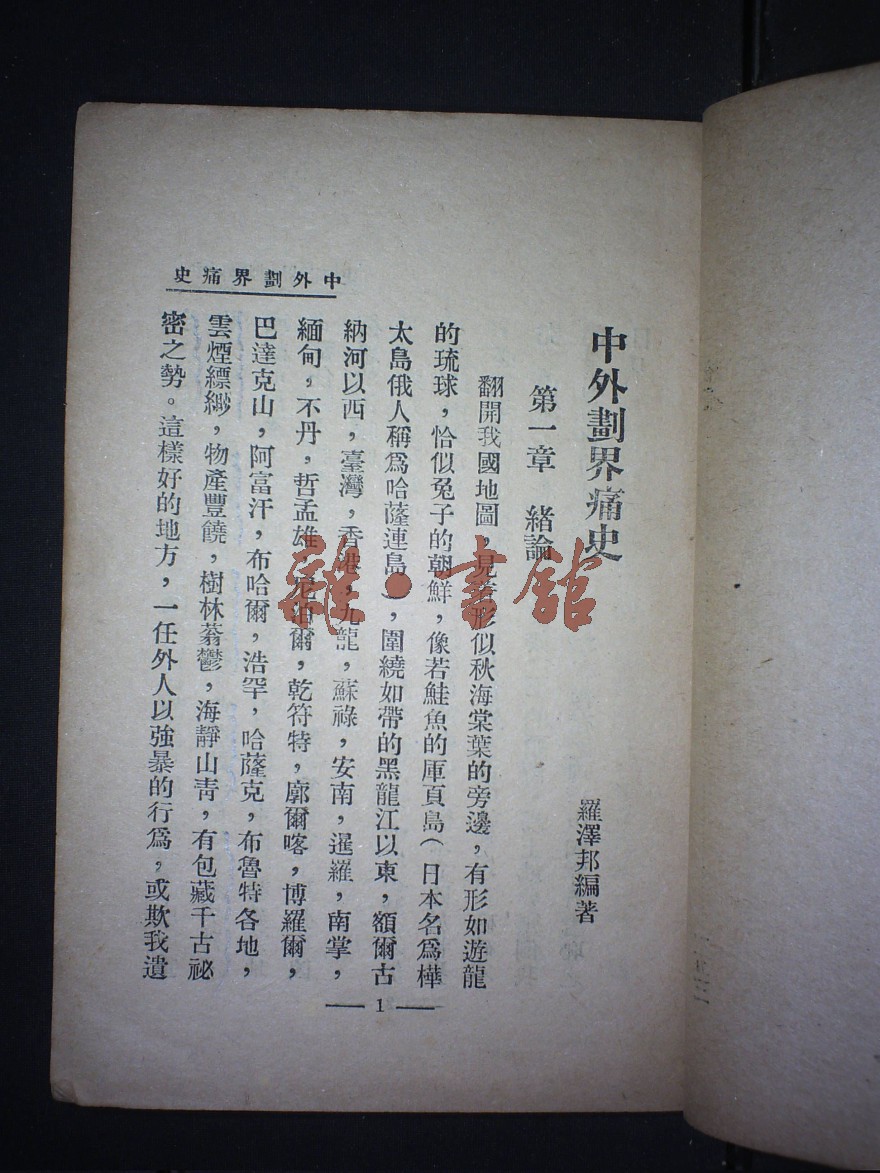 中外劃界痛史
羅澤邦編著
第一章 緒論
翻開我國地圖，見等形似秋海棠葉的旁邊，有形如遊龍
的琉球，恰似兔子的朝鮮，像若鮭魚的厙頁島（日本名爲樺
太島俄人稱爲哈薩連島），圍繞如帶的黑龍江以東，額爾古
納河以西，臺灣，香港，九龍，蘇祿，安南，暹羅，南掌，
緬甸，不丹，哲孟雄，尼泊爾，乾符特，廓爾喀，博羅爾，
巴達克山，阿富汗，布哈爾，浩罕，哈薩克，布魯特各地，
雲煙縹緲，物產豐饒，樹林蓊鬱，海靜山靑，有包藏千古祕
密之勢。這樣好的地方，一任外人以強暴的行爲，或欺我遺
中外劃界痛史
— 1 —
雜·書館